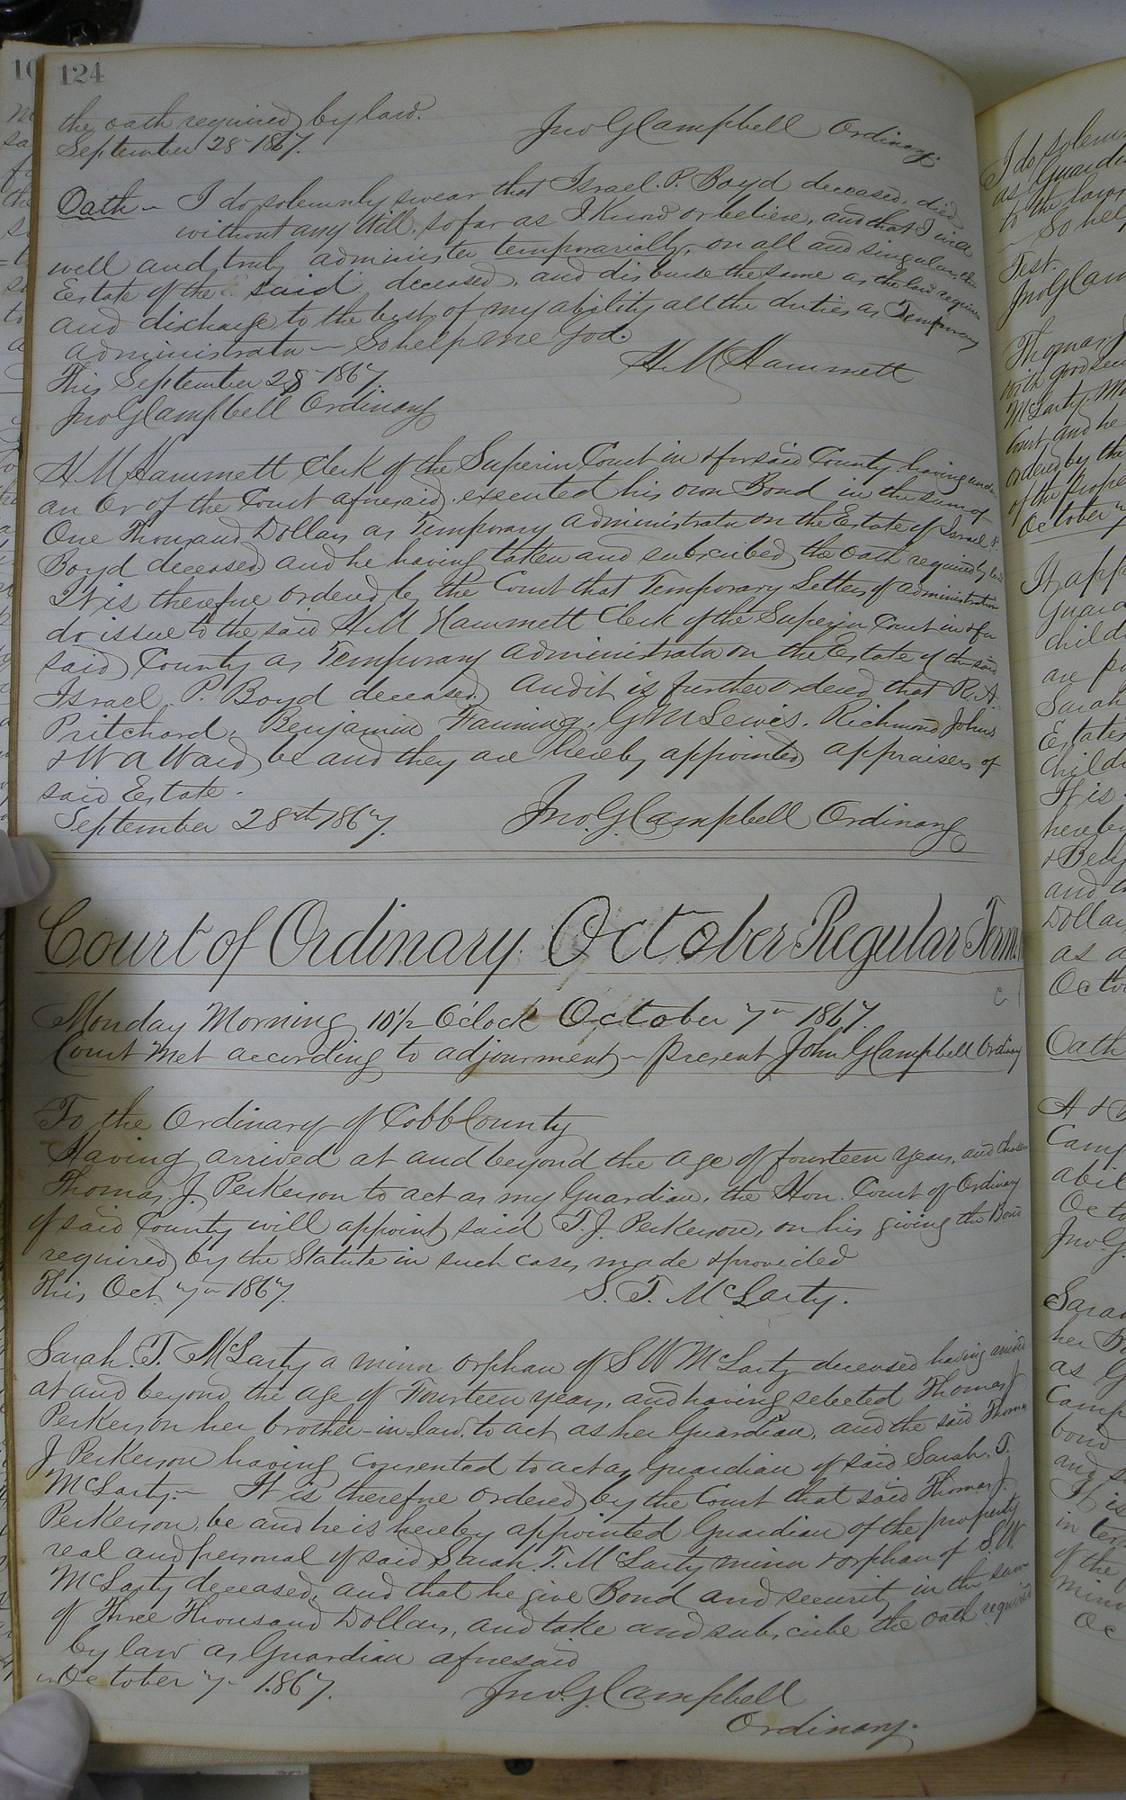 124
the oath required by law.
September 28th 1867. Jno G Campbell Ordinary.
Oath — I do solemnly swear that Israel. P. Boyd deceased, died
without any Will, so far as I Know or believe, and that I will
well and truly administer temporarially, on all and singular the
Estate of the said deceased, and disburse the same as the law requires
and discharge to the best of my ability all the duties as Temporary
Administrator — So help me God.
This September 28th 1867. H. M Hammett
Jno G Campbell Ordinary
H M Hammett Clerk of the Superior Court in & for said County having under
an Or of the Court aforesaid, executed his own Bond in the sum of
One Thousand Dollars as Temporary Administrator on the Estate of Israel P.
Boyd deceased and he having taken and subscribed the oath required by law
It is therefore ordered by the Court that Temporary Letters of administration
do issue to the said H. M Hammett Clerk of the Superior Court in & for
said County as Temporary Administrator on the Estate of the said
Israel P. Boyd deceased, And it is further ordered that R. A.
Pritchard, Benjamin Fanning, G M Lewis, Richmond Johns
& W A Ward be and they are hereby appointed appraisers of
said Estate.
September 28th 1867. Jno. G. Campbell Ordinary
Court of Ordinary October Regular Term
Monday Morning 10½ O'Clock October 7th 1867.
Court met according to adjournment — Present John G Campbell Ordinary
To the Ordinary of Cobb County
Having arrived at and beyond the age of fourteen years, and chosen
Thomas. J. Perkerson to act as my Guardian, the Hon. Court of Ordinary
of said County will appoint said T. J. Perkerson, on his giving the Bond
required by the Statute in such cases made & provided
This Oct 7th 1867. S. T. McLarty.
Sarah. T. McLarty a minor orphan of S W McLarty deceased having arrived
at and beyond the age of Fourteen years, and having selected Thomas J
Perkerson her brother-in-law, to act as her Guardian, and the said Thomas
J Perkerson having consented to act as Guardian of said Sarah. T.
McLarty.— It is therefore ordered by the Court that said Thomas J.
Perkerson, be and he is hereby appointed Guardian of the property
real and personal of said Sarah. T. McLarty minor & orphan of S. W.
McLarty deceased, and that he give Bond and security in the sum
of Three Thousand Dollars, and take and subscribe the oath required
by law as Guardian aforesaid
October 7th 1867. Jno. G. Campbell
Ordinary.